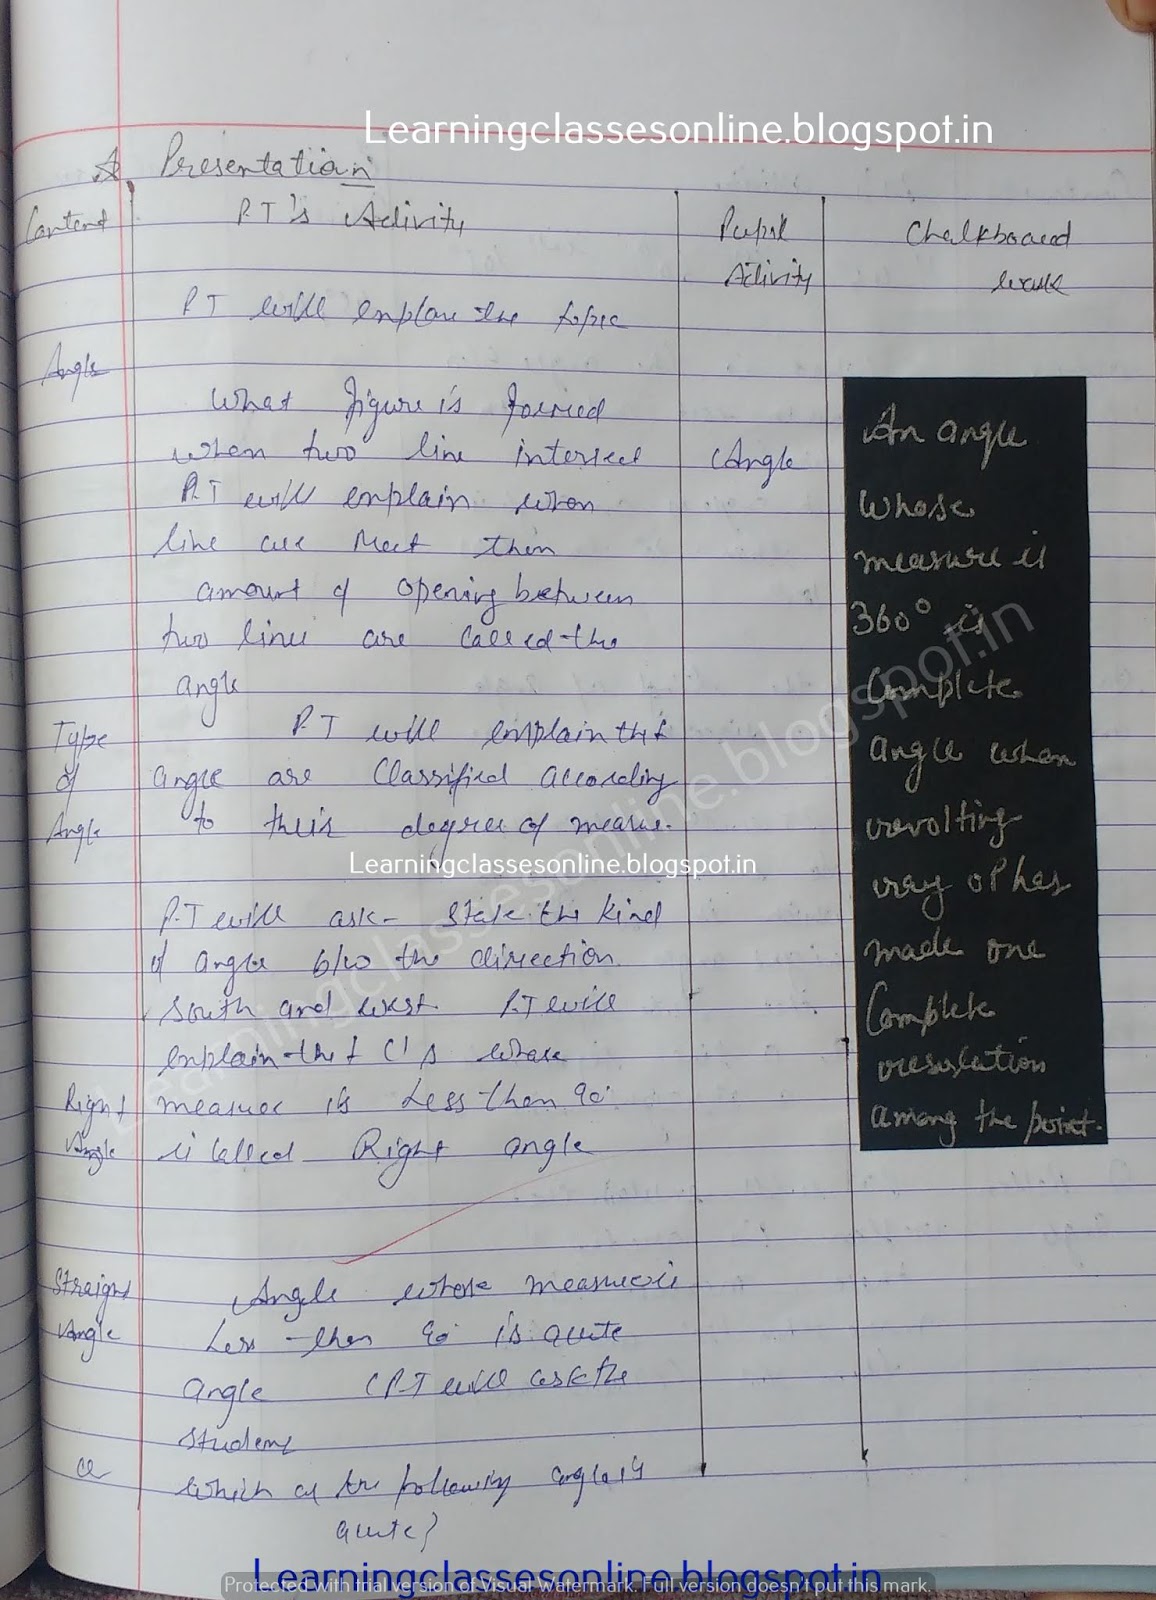 Learningclassesonline.blogspot.in
Presentation:
Content
P.T's Activity
Pupil Activity
Chalkboard work
P.T will explain the topic
Angle
What figure is formed
when two line intersect
Angle
P.T will explain when
line are Meet then
amount of opening between
two lines are called the
angle
Type of Angle
P.T will explain that
angle are Classified according
to their degree of measure.
Learningclassesonline.blogspot.in
P.T will ask - State the kind
of angle b/w the direction
South and west P.T will
explain that whose
Right Angle
measure is Less then 90°
is called Right angle
Straight Angle
Angle whose measure is
Less then 90° is acute
angle P.T will ask the
student
Which of the following angle is
acute?
An angle
whose
measure is
360° is
Complete
angle when
revolting
ray OP has
made one
Complete
resulation
among the point.
Learningclassesonline.blogspot.in
Learningclassesonline.blogspot.in
Protected with trial version of Visual Watermark. Full version doesn't put this mark.